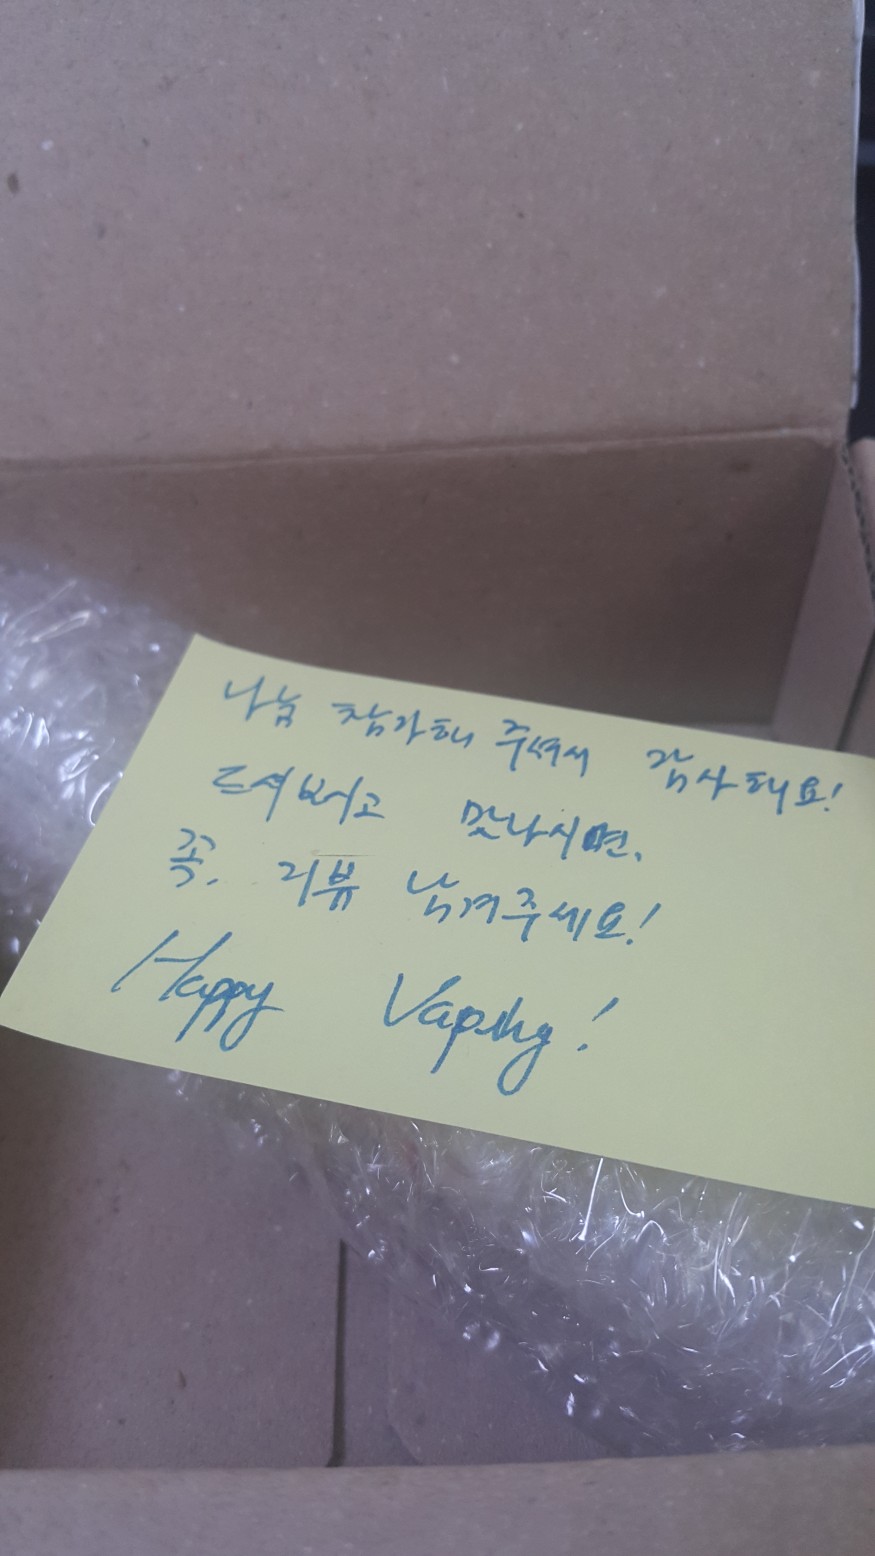 나눔 참가해 주셔서 감사해요!
드셔보시고 맛나시면,
꼭, 리뷰 남겨주세요!
Happy Vaping!